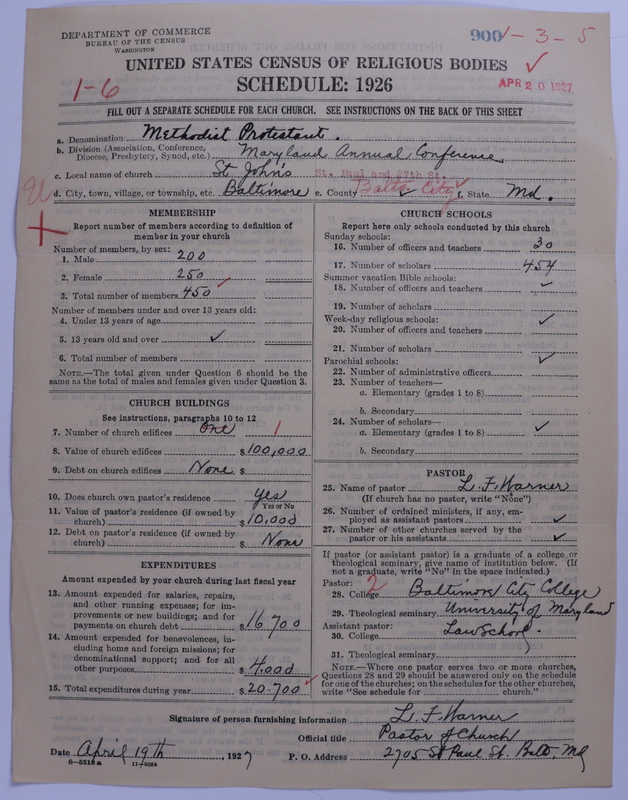 DEPARTMENT OF COMMERCE
BUREAU OF THE CENSUS
WASHINGTON
900 1-3-5
UNITED STATES CENSUS OF RELIGIOUS BODIES
1-6
SCHEDULE: 1926
APR 20 1927
FILL OUT A SEPARATE SCHEDULE FOR EACH CHURCH. SEE INSTRUCTIONS ON THE BACK OF THIS SHEET
a. Denomination Methodist Protestant.
b. Division (Association, Conference, Diocese, Presbytery, Synod, etc.) Maryland Annual Conference
c. Local name of church St John's St. Paul and 27th St.
d. City, town, village, or township, etc. Baltimore e. County Balto City f. State Md.
MEMBERSHIP
Report number of members according to definition of
member in your church
Number of members, by sex:
1. Male 200
2. Female 250
3. Total number of members 450
Number of members under and over 13 years old:
4. Under 13 years of age
5. 13 years old and over ✓
6. Total number of members
NOTE.—The total given under Question 6 should be
same as the total of males and females given under Question 3.
CHURCH BUILDINGS
See instructions, paragraphs 10 to 12
7. Number of church edifices One 1
8. Value of church edifices $100,000
9. Debt on church edifices None $
10. Does church own pastor's residence yes
Yes or No
11. Value of pastor's residence (if owned by
church) $10,000
12. Debt on pastor's residence (if owned by
church) $ None
EXPENDITURES
Amount expended by your church during last fiscal year
13. Amount expended for salaries, repairs,
and other running expenses; for im-
provements or new buildings; and for
payments on church debt $16,700
14. Amount expended for benevolences, in-
cluding home and foreign missions; for
denominational support; and for all
other purposes $4,000
15. Total expenditures during year $20,700
CHURCH SCHOOLS
Report here only schools conducted by this church
Sunday schools:
16. Number of officers and teachers 30
17. Number of scholars 454
Summer vacation Bible schools:
18. Number of officers and teachers ✓
19. Number of scholars
Week-day religious schools: ✓
20. Number of officers and teachers
21. Number of scholars
Parochial schools: ✓
22. Number of administrative officers
23. Number of teachers—
a. Elementary (grades 1 to 8)
b. Secondary
24. Number of scholars—
a. Elementary (grades 1 to 8) ✓
b. Secondary
PASTOR
25. Name of pastor L. F. Warner
(If church has no pastor, write "None")
26. Number of ordained ministers, if any, em-
ployed as assistant pastors ✓
27. Number of other churches served by the
pastor or his assistants ✓
If pastor (or assistant pastor) is a graduate of a college or
theological seminary, give name of institution below. (If
not a graduate, write "No" in the space indicated.)
Pastor: 2
28. College Baltimore City College
29. Theological seminary University of Maryland
Assistant pastor:
30. College Law School.
31. Theological seminary
NOTE.—Where one pastor serves two or more churches,
Questions 28 and 29 should be answered only on the schedule
for one of the churches; on the schedules for the other churches,
write "See schedule for church."
Signature of person furnishing information L. F. Warner
Official title Pastor of Church
Date April 19th, 1927 P. O. Address 2705 St Paul St. Balto, Md
8-5518a 11-9084